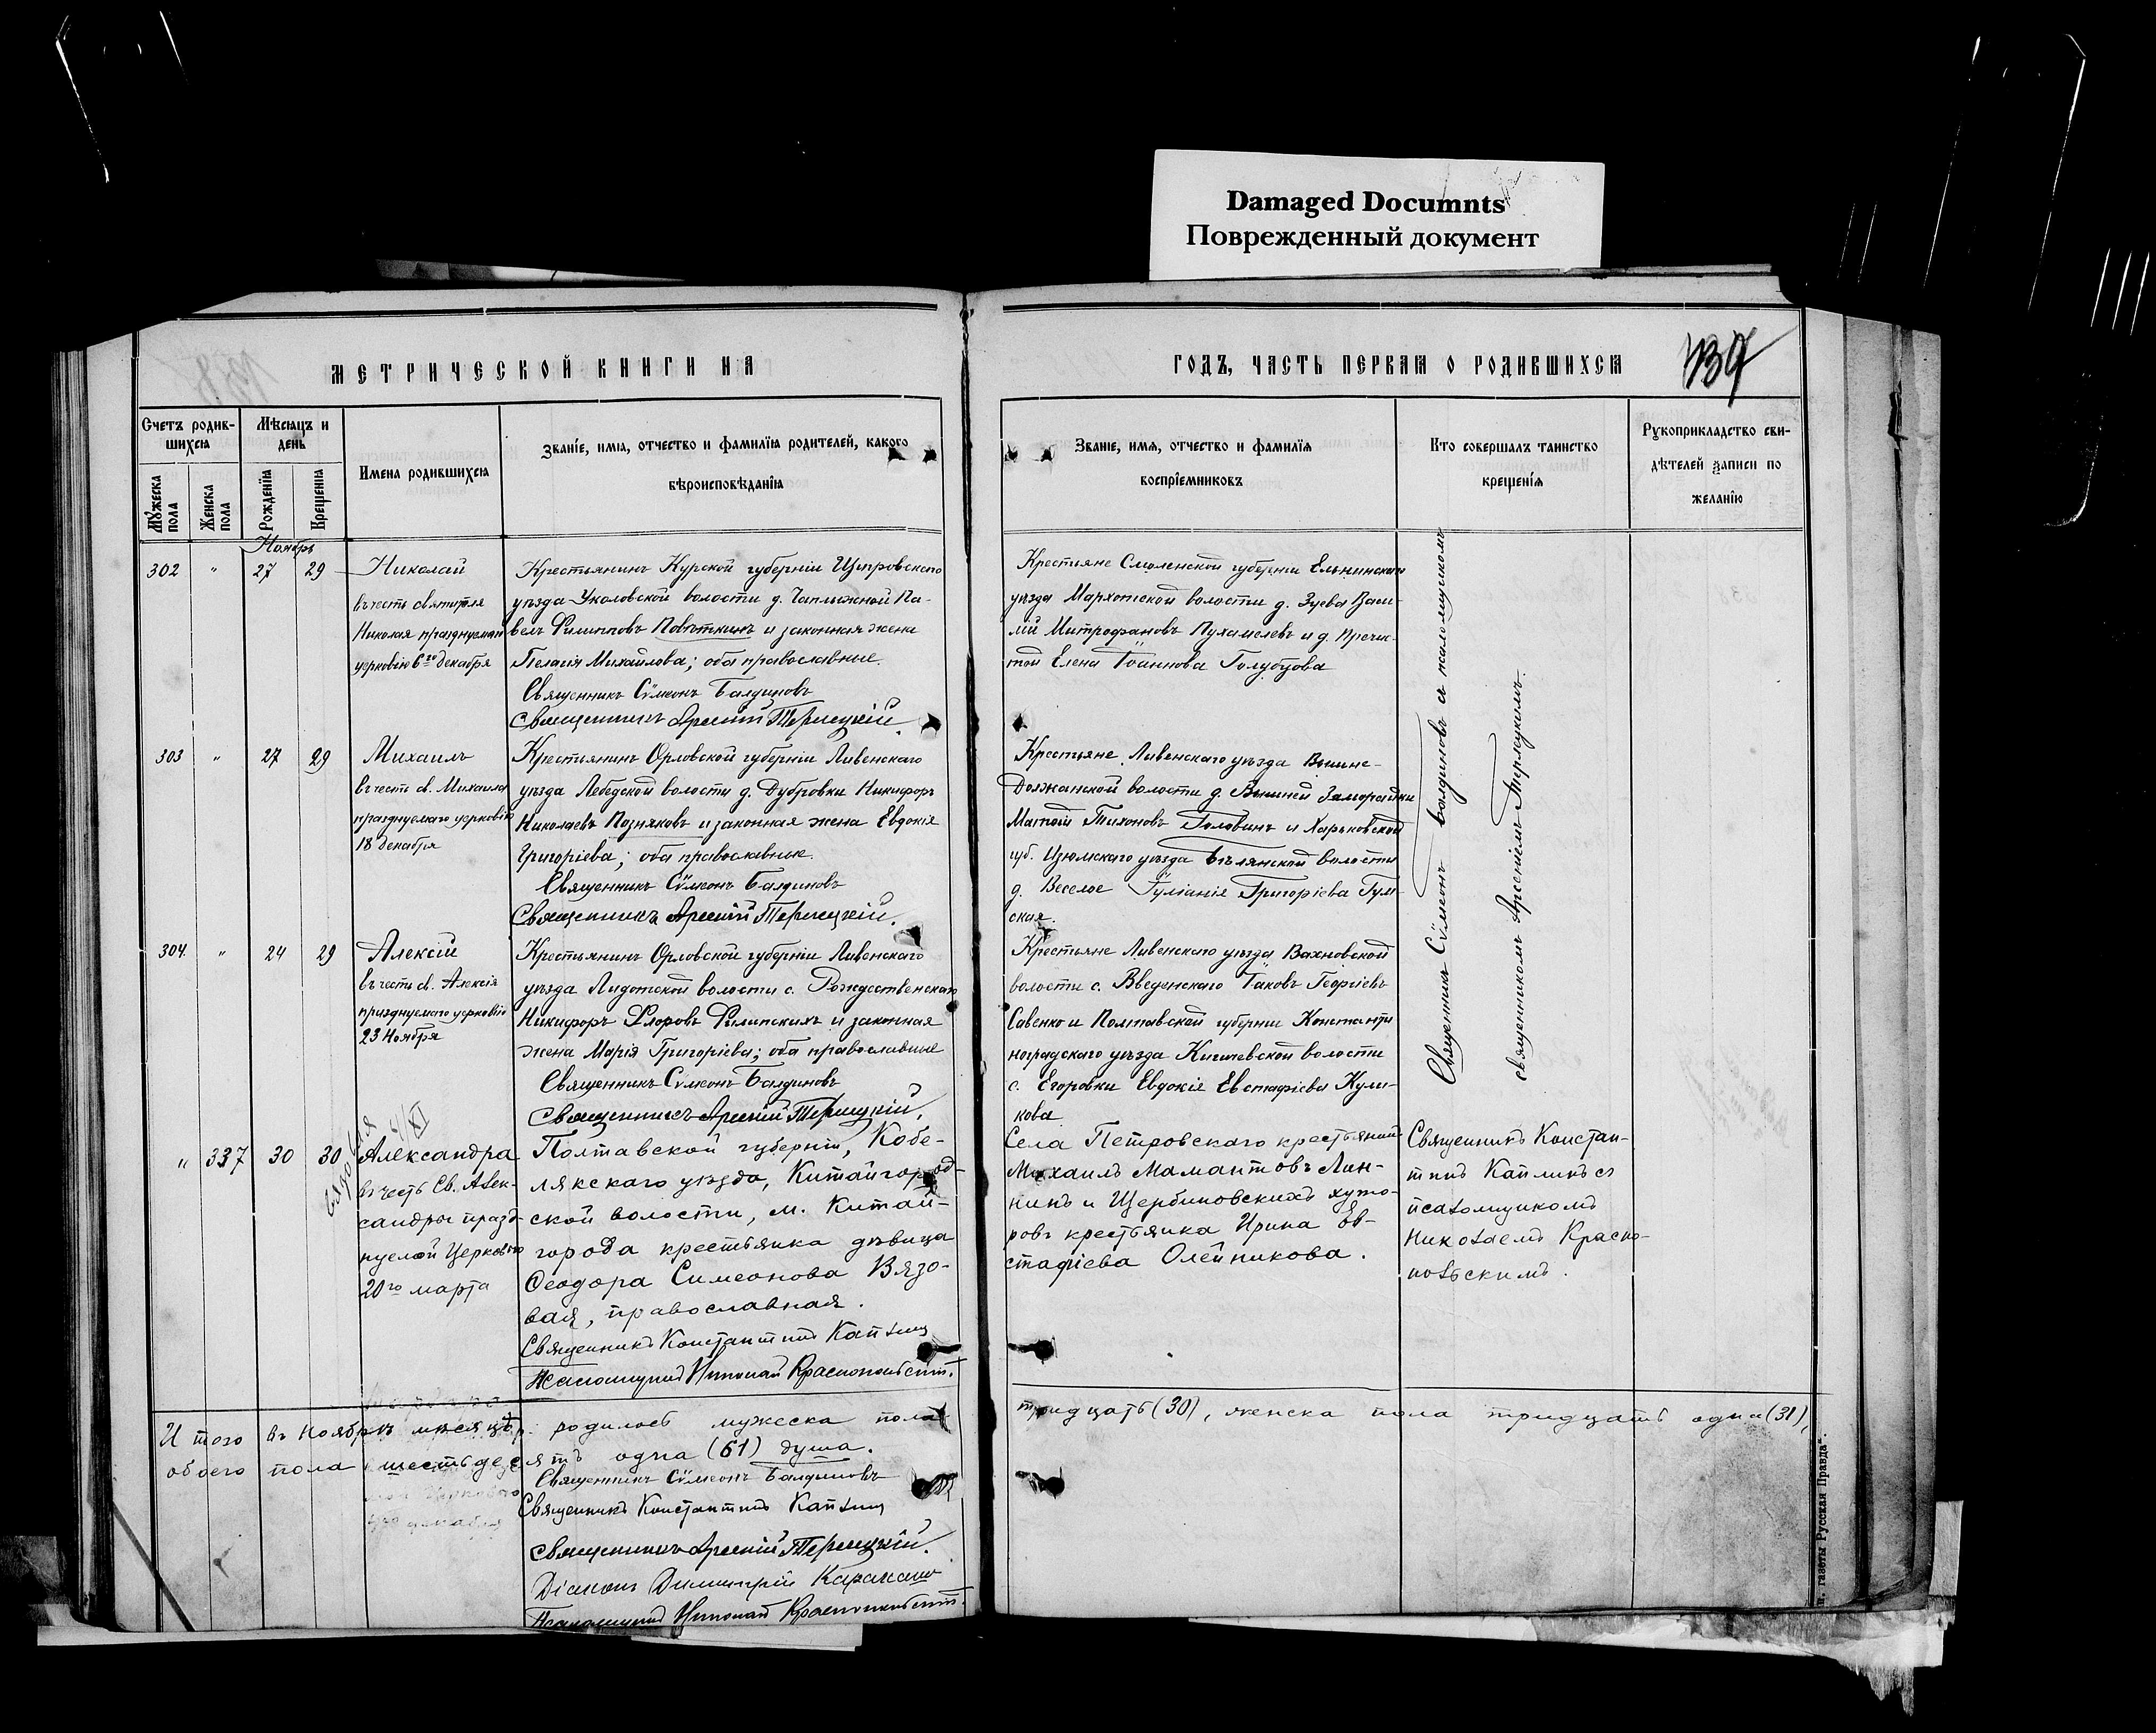 Damaged Documnts
Поврежденный документ
МЕТРИЧЕСКОЙ КНИГИ НА
ГОДЪ, ЧАСТЬ ПЕРВАЯ О РОДИВШИХСЯ
139
Счетъ родив-
шихся
Мѣсяцъ и
день
Имена родившихся
Званіе, имя, отчество и фамилія родителей, какого
вѣроисповѣданія
Мужеска пола
Женска пола
Рожденія
Крещенія
Званіе, имя, отчество и фамилія
воспріемниковъ
Кто совершалъ таинство
крещенія
Рукоприкладство сви-
дѣтелей записи по
желанію
Ноябрь
302 " 27 29
Николай
въ честь святителя
Николая празднуемаго
церковію 6го декабря
Крестьянинъ Курской губерніи Щигровскаго
уѣзда Уколовской волости д. Чаплыжной Па-
велъ Филипповъ Повѣткинъ и законная жена
Пелагія Михайлова; оба православные.
Священникъ Сѵмеонъ Балдиновъ
Священникъ Арсеній Терлецкій.
Крестьяне Смоленской губерніи Ельнинскаго
уѣзда Мархоткой волости д. Зуева Васи-
лій Митрофановъ и д. Пречис-
той Елена Іоаннова Голубцова
303 " 27 29
Михаилъ
въ честь св. Михаила
празднуемаго церковію
18 декабря
Крестьянинъ Орловской губерніи Ливенскаго
уѣзда Лебедской волости д. Дубровки Никифоръ
Николаевъ Позняковъ и законная жена Евдокія
Григоріева; оба православные.
Священникъ Сѵмеонъ Балдиновъ
Священникъ Арсеній Терлецкій.
Крестьяне Ливенскаго уѣзда Вышне-
Должанской волости д Вышней Заморайки
Матѳій Тихоновъ Головинъ и Харьковской
губ. Изюмскаго уѣзда Бѣлянской волости
д. Веселое Іуліанія Григоріева Гум-
ская.
304 " 24 29
Алексій
въ честь св. Алексія
празднуемаго церковію
23 Ноября
Крестьянинъ Орловской губерніи Ливенскаго
уѣзда волости с. Рождественскаго
Никифоръ Флоровъ Филипскихъ и законная
жена Марія Григоріева; оба православные
Священникъ Сѵмеонъ Балдиновъ
Священникъ Арсеній Терлецкій.
Крестьяне Ливенскаго уѣзда Вахновской
волости с. Введенскаго Іаковъ Георгіевъ
Савенко и Полтавской губерніи Константи
ноградскаго уѣзда волости
с. Егоровки Евдокія Евстафіева Кули-
кова
Священникъ Сѵмеонъ Балдиновъ съ псаломщикомъ
священникомъ Арсеніемъ Терлецкимъ.
" 337 30 30
Александра
въ честь Св. Алек-
сандры празд-
нуемой Церковью
20го марта
Полтавской губерніи, Кобе-
лякскаго уѣзда, Китайгород-
ской волости, м. Китай-
города крестьянка дѣвица
Ѳеодора Симеонова Вязо-
вая, православная.
Священникъ Константинъ Каплинъ
Псаломщикъ Николай Краснопольскій.
Села Петровскаго крестьянинъ
Михаилъ Мамантовъ Лин-
никъ и Щербиновскихъ хуто-
ровъ крестьянка Ирина Ев-
стафіева Олейникова.
Священникъ Констан-
тинъ Каплинъ съ
псаломщикомъ
Николаемъ Красно-
польскимъ.
Итого въ Ноябрѣ мѣсяцѣ родилось мужеска пола
тридцать (30), женска пола тридцать одна (31),
обоего пола шестьдесятъ одна (61) душа.
Священникъ Сѵмеонъ Балдиновъ
Священникъ Константинъ Каплинъ
Священникъ Арсеній Терлецкій.
Діаконъ Димитрій
Псаломщикъ Николай Краснопольскій.
газеты Русская Правда".